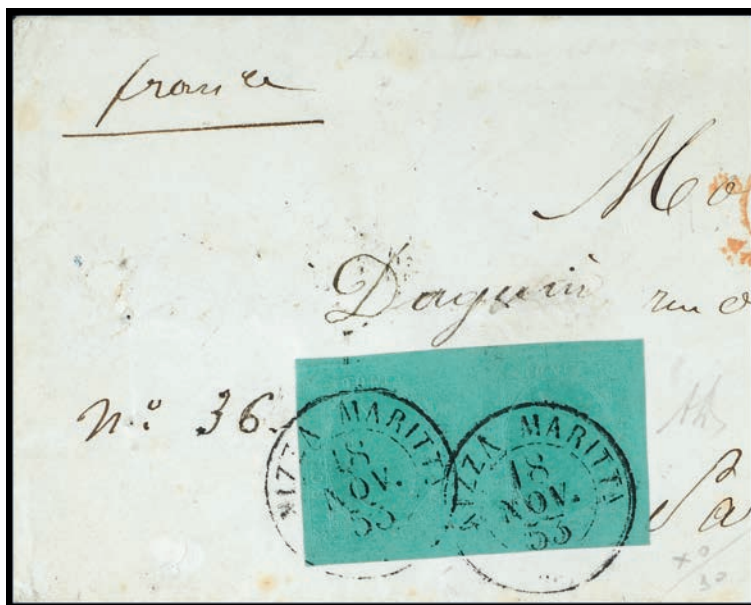 france
Mo
Daguin rue d
n.° 36.
NIZZA MARITTA
18
NOV.
53
NIZZA MARITTA
18
NOV.
53
Pa